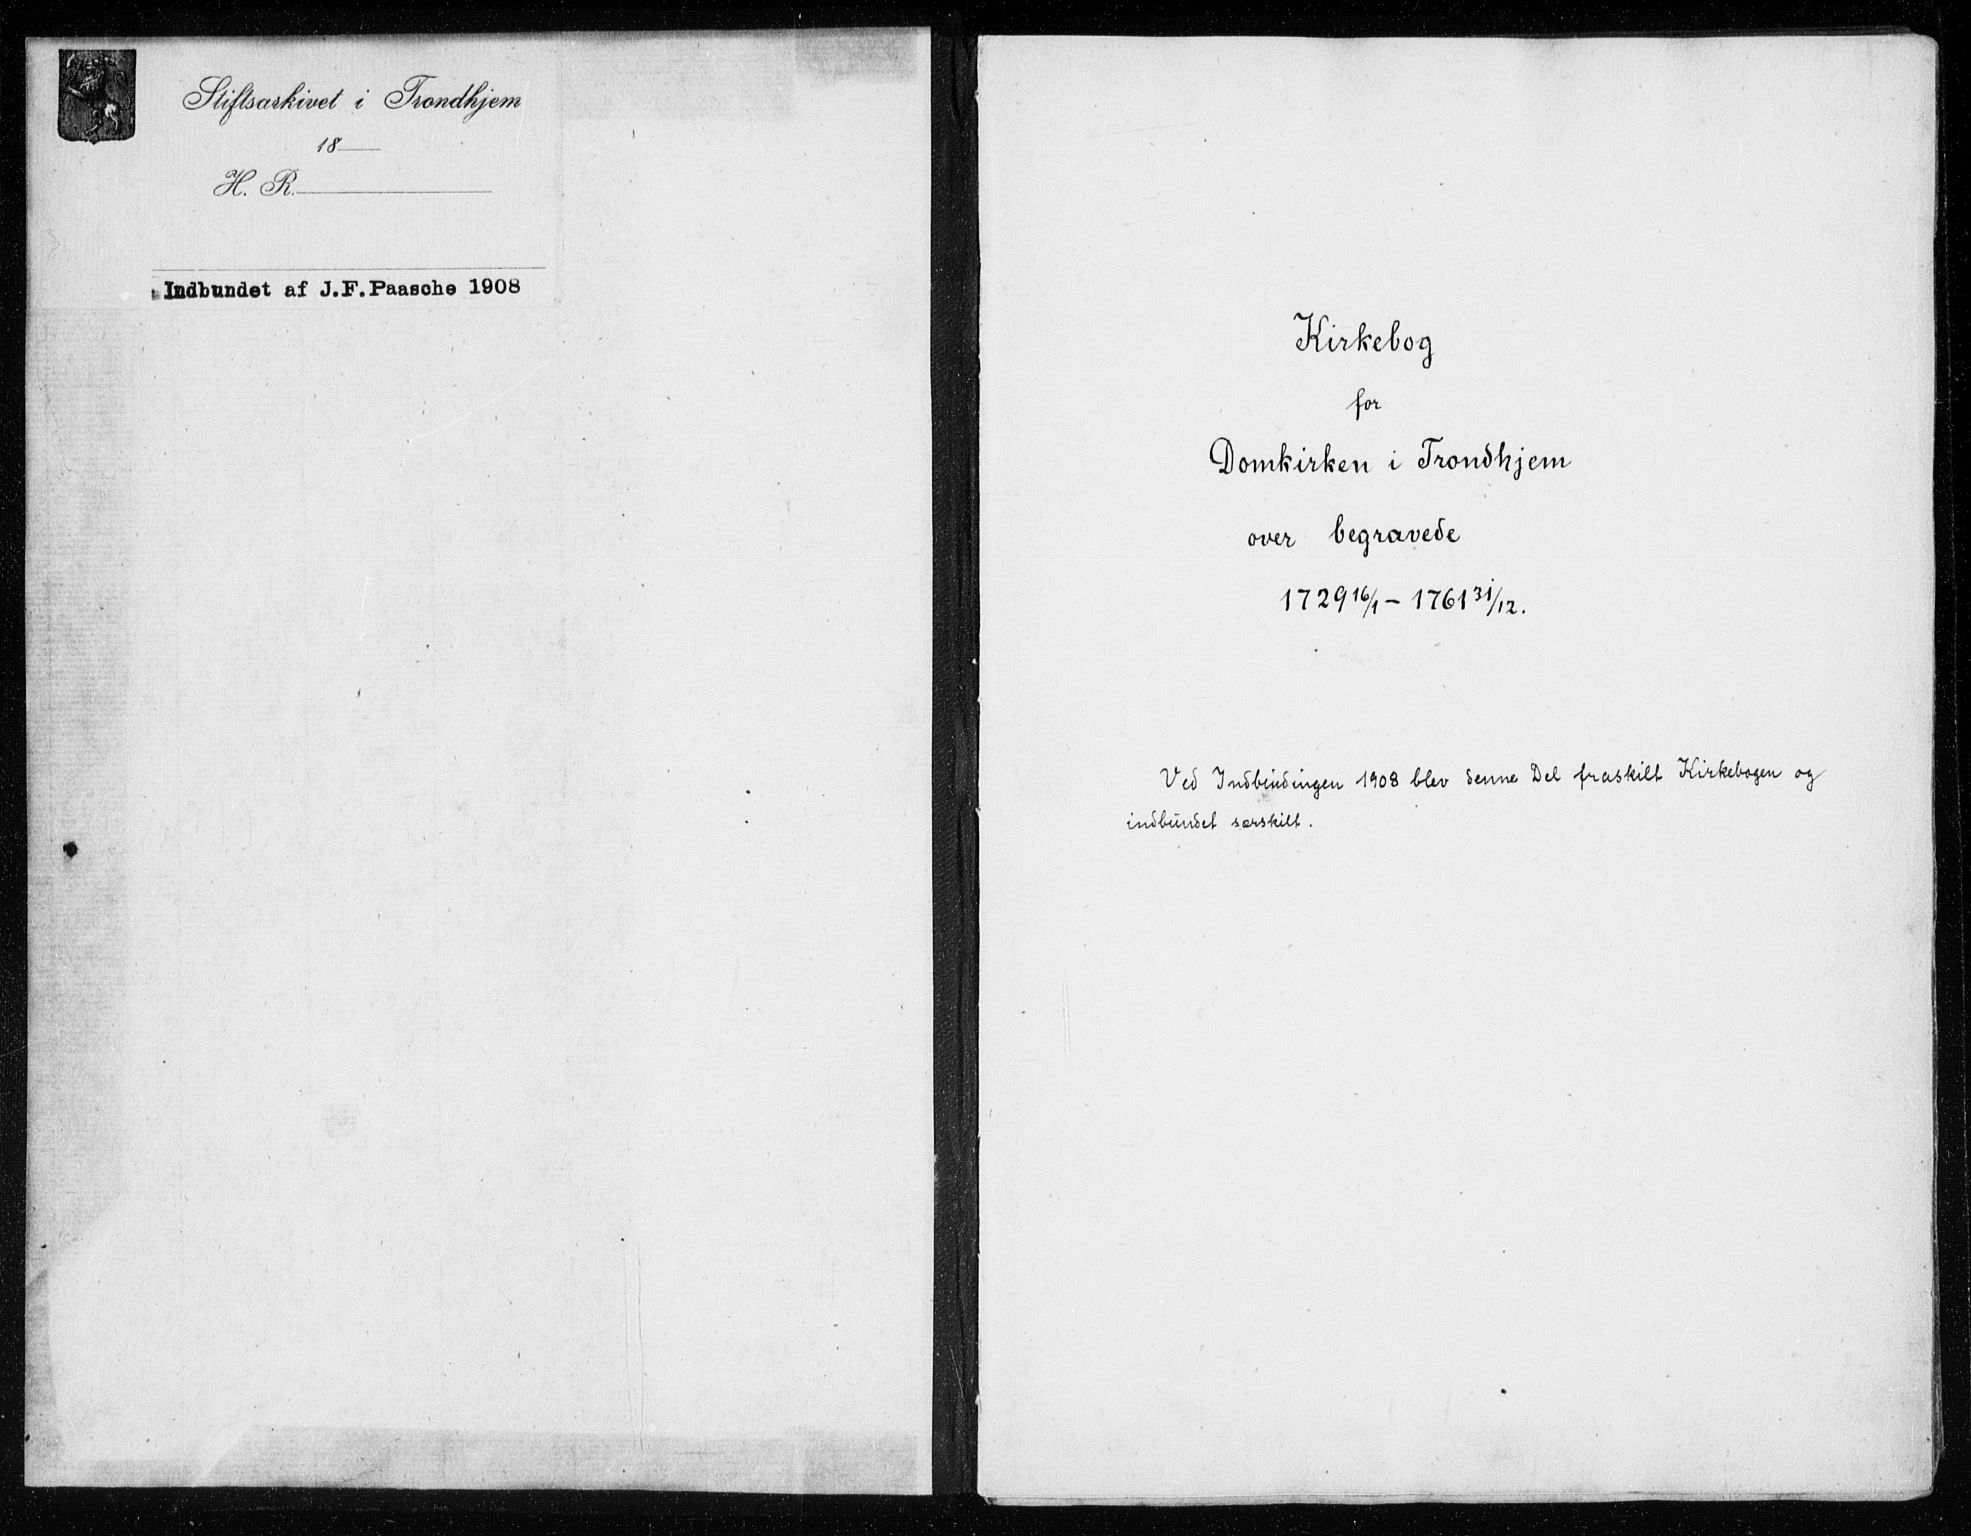 Stiftsarkivet i Trondhjem
18
H. R.
Indbundet af J.F.Paasche 1908
Kirkebog
for
Domkirken i Trondhjem
over begravede
1729 16/1 – 1761 31/12.
Ved Indbindingen 1908 blev denne Del fraskilt Kirkebogen og
indbundet særskilt.